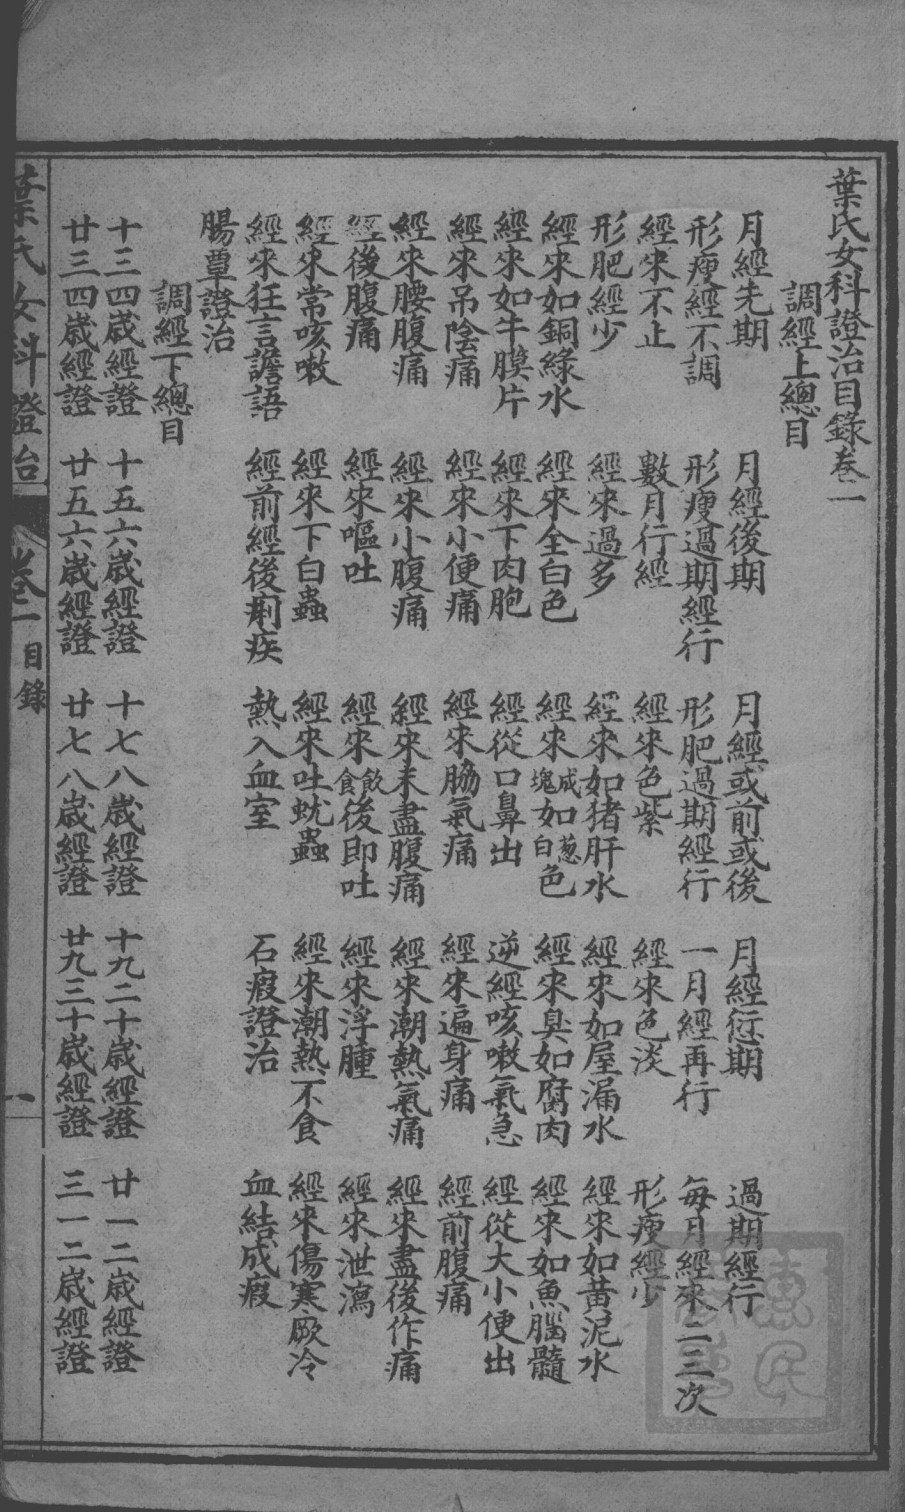 葉氏女科證治目錄卷一
調經上總目
月經先期　月經後期　月經或前或後　月經愆期　過期經行
形瘦經不調　形瘦過期經行　形肥過期經行　一月經再行　每月經來二三次
經來不止　數月行經　經來色紫　經來色淡　形瘦經少
形肥經少　經來過多　經來如猪肝水　經來如屋漏水　經來如黃泥水
經來如銅綠水　經來全白色　經來成塊如葱白色　經來臭如腐肉　經來如魚腦髓
經來如牛膜片　經來下肉胞　經從口鼻出　逆經咳嗽氣急　經從大小便出
經來吊陰痛　經來小便痛　經來脇氣痛　經來遍身痛　經前腹痛
經來腰腹痛　經來小腹痛　經來未盡腹痛　經來潮熱氣痛　經來盡後作痛
經後腹痛　經來嘔吐　經來飲食後即吐　經來浮腫　經來泄瀉
經來常咳嗽　經來下白蟲　經來吐蚘蟲　經來潮熱不食　經來傷寒厥冷
經來狂言譫語　經前經後痢疾　熱入血室　石瘕證治　血結成瘕
腸覃證治
調經下總目
十三四歲經證　十五六歲經證　十七八歲經證　十九二十歲經證　廿一二歲經證
廿三四歲經證　廿五六歲經證　廿七八歲經證　廿九三十歲經證　三一二歲經證
葉氏女科證治　卷一　目錄　一